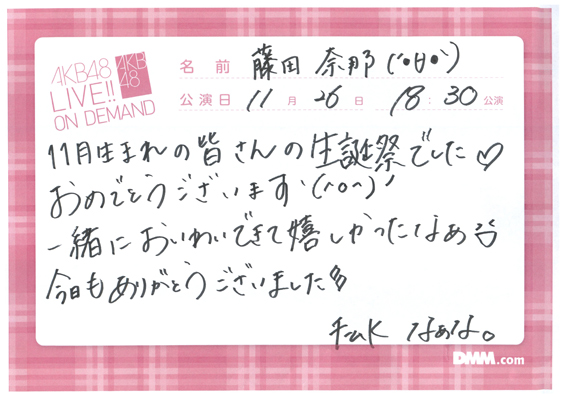 AKB48
LIVE!!
ON DEMAND
AKB
48
名 前 藤田 奈那(´•θ•`)
公演日 11 月 26 日 18 : 30 公演
11月生まれの皆さんの生誕祭でした♡
おめでとうございます`(^o^)´
一緒においわいできて嬉しかったなぁ
今日もありがとうございました
チームK なぁな。
DMM.com